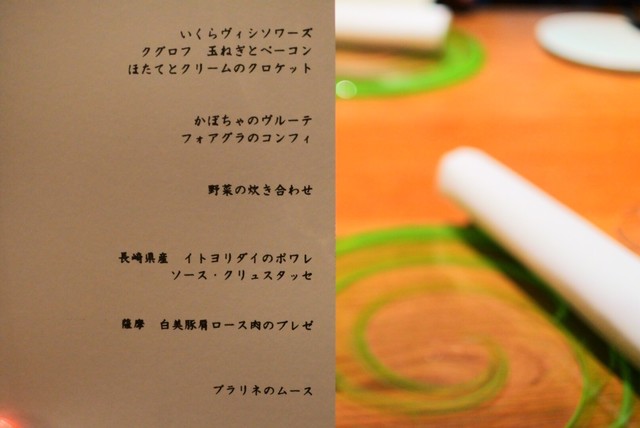 いくらヴィシソワーズ
クグロフ　玉ねぎとベーコン
ほたてとクリームのクロケット
かぼちゃのヴルーテ
フォアグラのコンフィ
野菜の炊き合わせ
長崎県産　イトヨリダイのポワレ
ソース・クリュスタッセ
薩摩　白美豚肩ロース肉のブレゼ
プラリネのムース